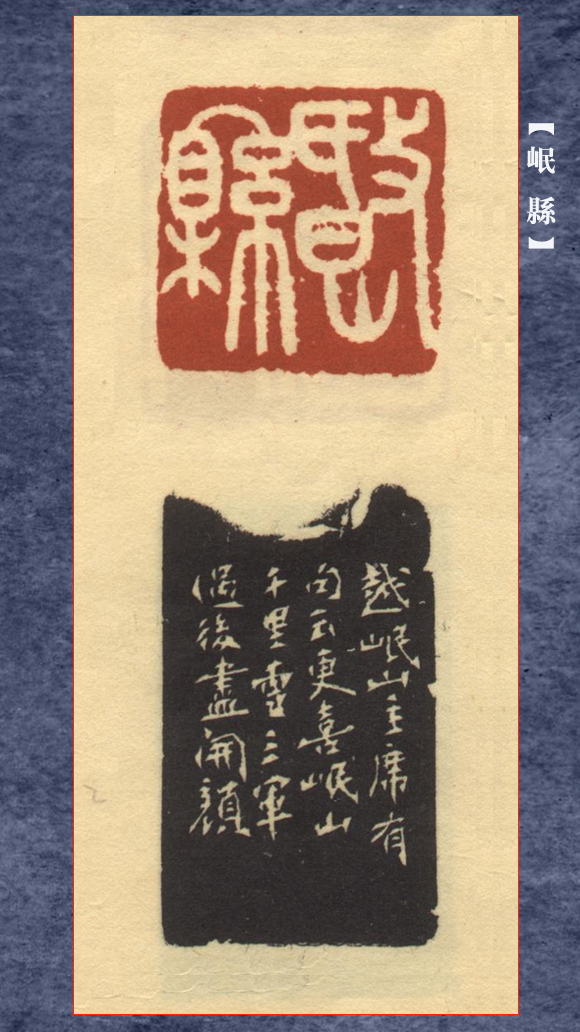 【岷縣】
縣
越岷山主席有
句云更喜岷山
千里雪三軍
過後盡開顏